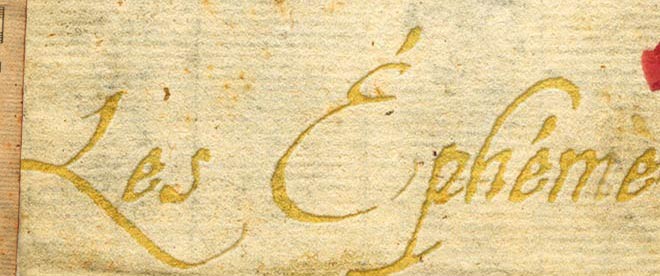 Les Éphémè